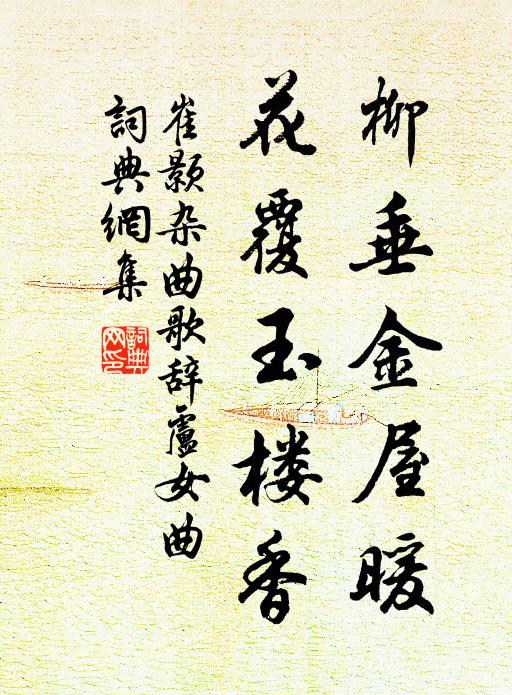 柳垂金屋暖
花覆玉楼香
崔颢杂曲歌辞盧女曲
詞典網集
詞典网印